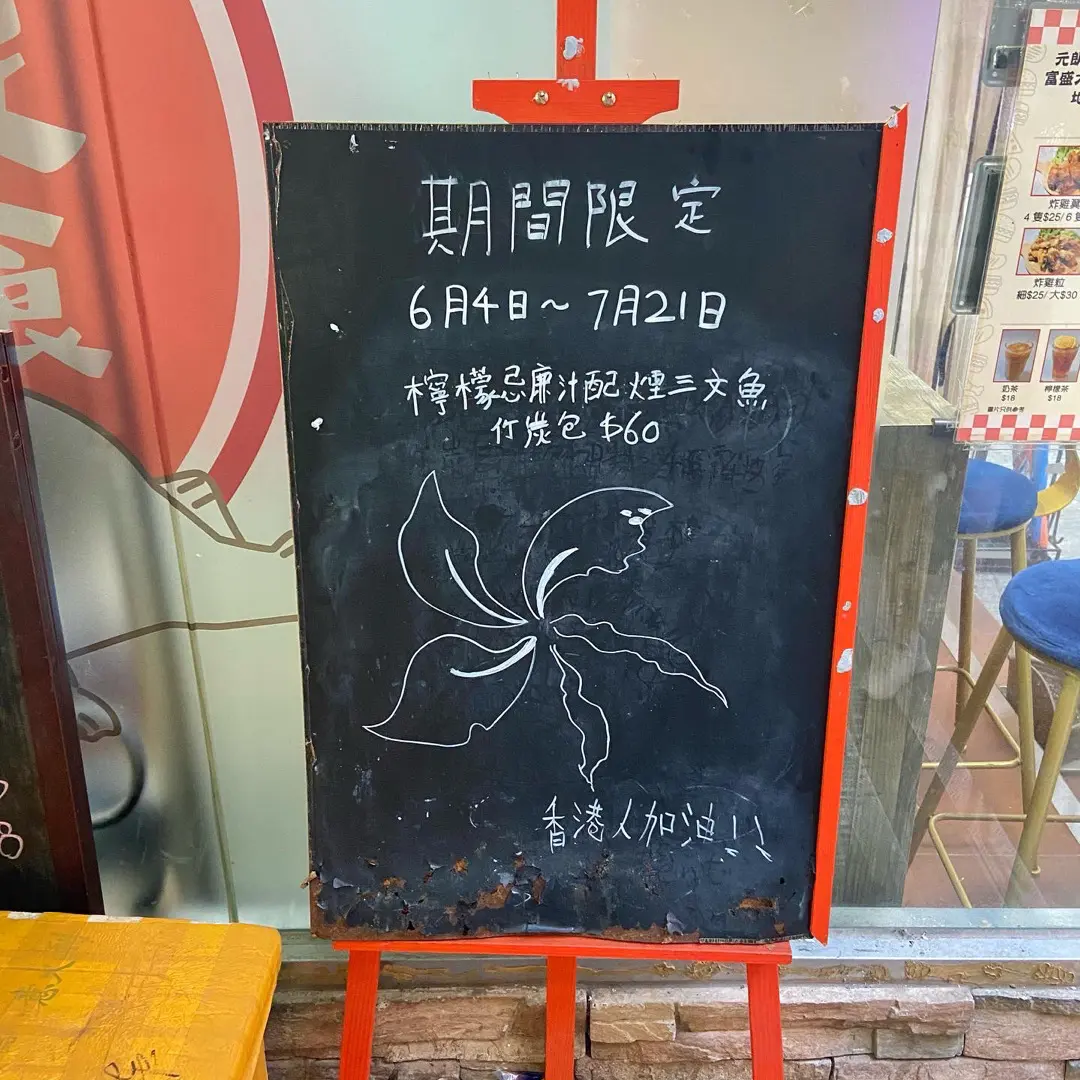 期間限定
6月4日～7月21日
檸檬忌廉汁配煙三文魚
竹炭包 $60
香港人加油!!
元朗
富盛大
炸雞翼
4隻$25/6隻
炸雞粒
細$25/大$30
奶茶
$18
檸檬茶
$18
圖片只供參考
食
8